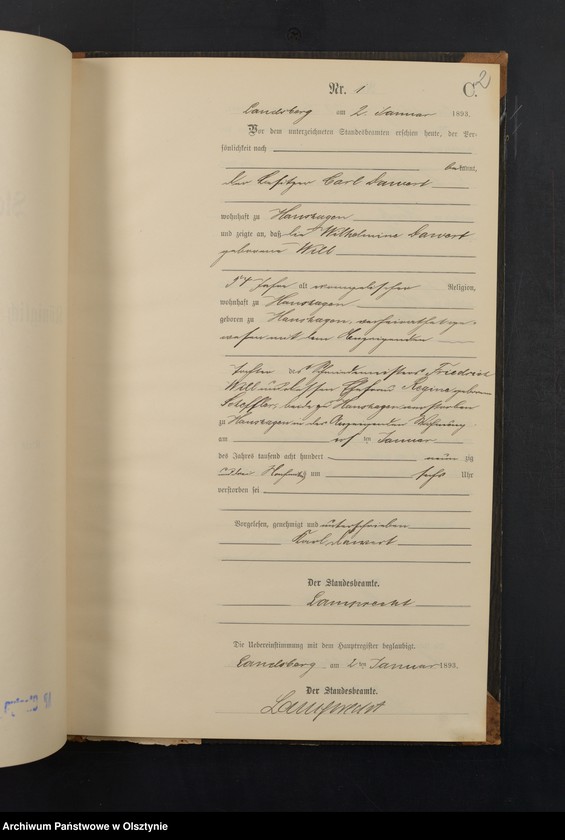 Nr. 1
C.
2
Landsberg am 2. Januar 1893.
Vor dem unterzeichneten Standesbeamten erschien heute, der Per-
sönlichkeit nach
kannt,
der Besitzer Carl Dawert
wohnhaft zu Hanshagen
und zeigte an, daß die Wilhelmine Dawert
geborene Will
54 Jahre alt evangelischer Religion,
wohnhaft zu Hanshagen
geboren zu Hanshagen, verheirathet ge-
wesen mit dem Anzeigenden
Tochter des Schmiedemeisters Friedrich
Will und dessen Ehefrau Regine geborene
Scheffler, beide zu Hanshagen verstorben
zu Hanshagen in des Anzeigenden Wohnung
am ten Januar
des Jahres tausend acht hundert neun zig
und drei Nachmittags um sechs Uhr
verstorben sei
Vorgelesen, genehmigt und unterschrieben
Karl Dawert
Der Standesbeamte.
Lamprecht
Die Uebereinstimmung mit dem Hauptregister beglaubigt.
Landsberg am 2ten Januar 1893.
Der Standesbeamte.
Lamprecht
Archiwum Państwowe w Olsztynie